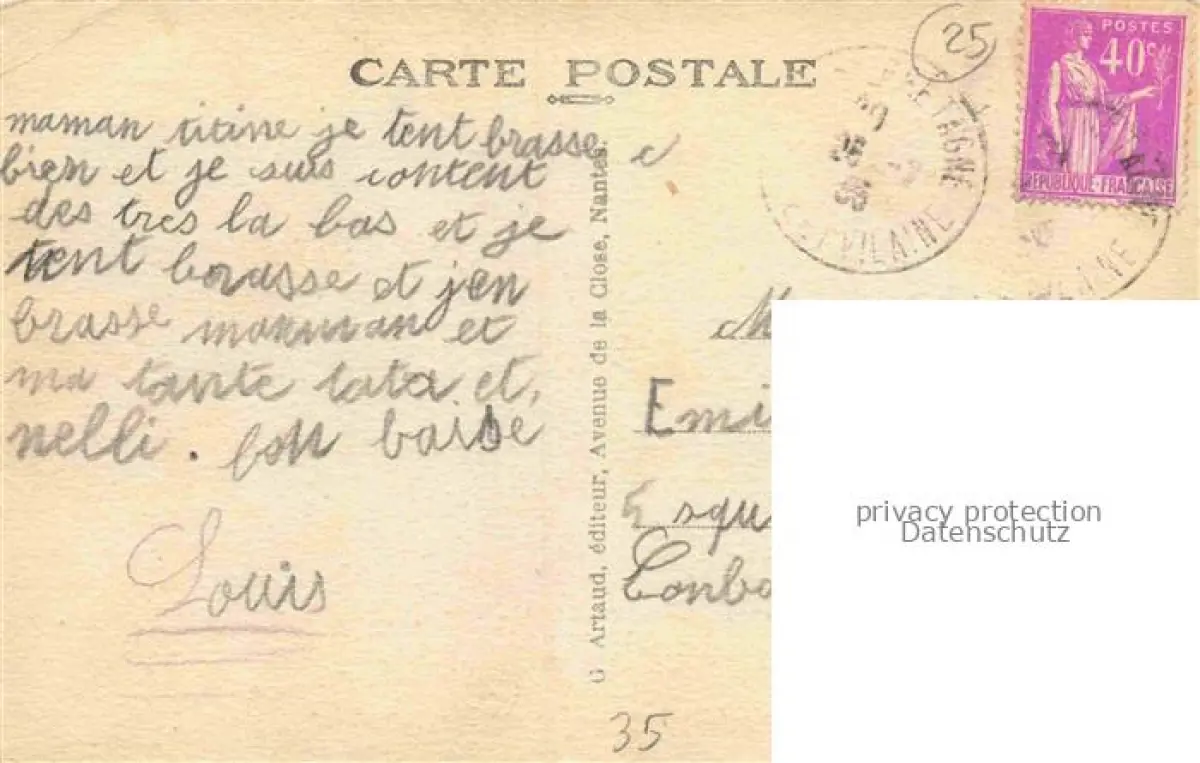 CARTE POSTALE
25
POSTES
40c
REPUBLIQUE-FRANÇAISE
maman titine je tent brasse
bien et je suis content
des tres la bas et je
tent brasse et j'en
brasse maman et
ma tante tata et,
nelli. bon baise
Louis
G Artaud, éditeur, Avenue de la Close, Nantes.
ET VILAINE
M
Emi
Esqu
Conbo
privacy protection
Datenschutz
35